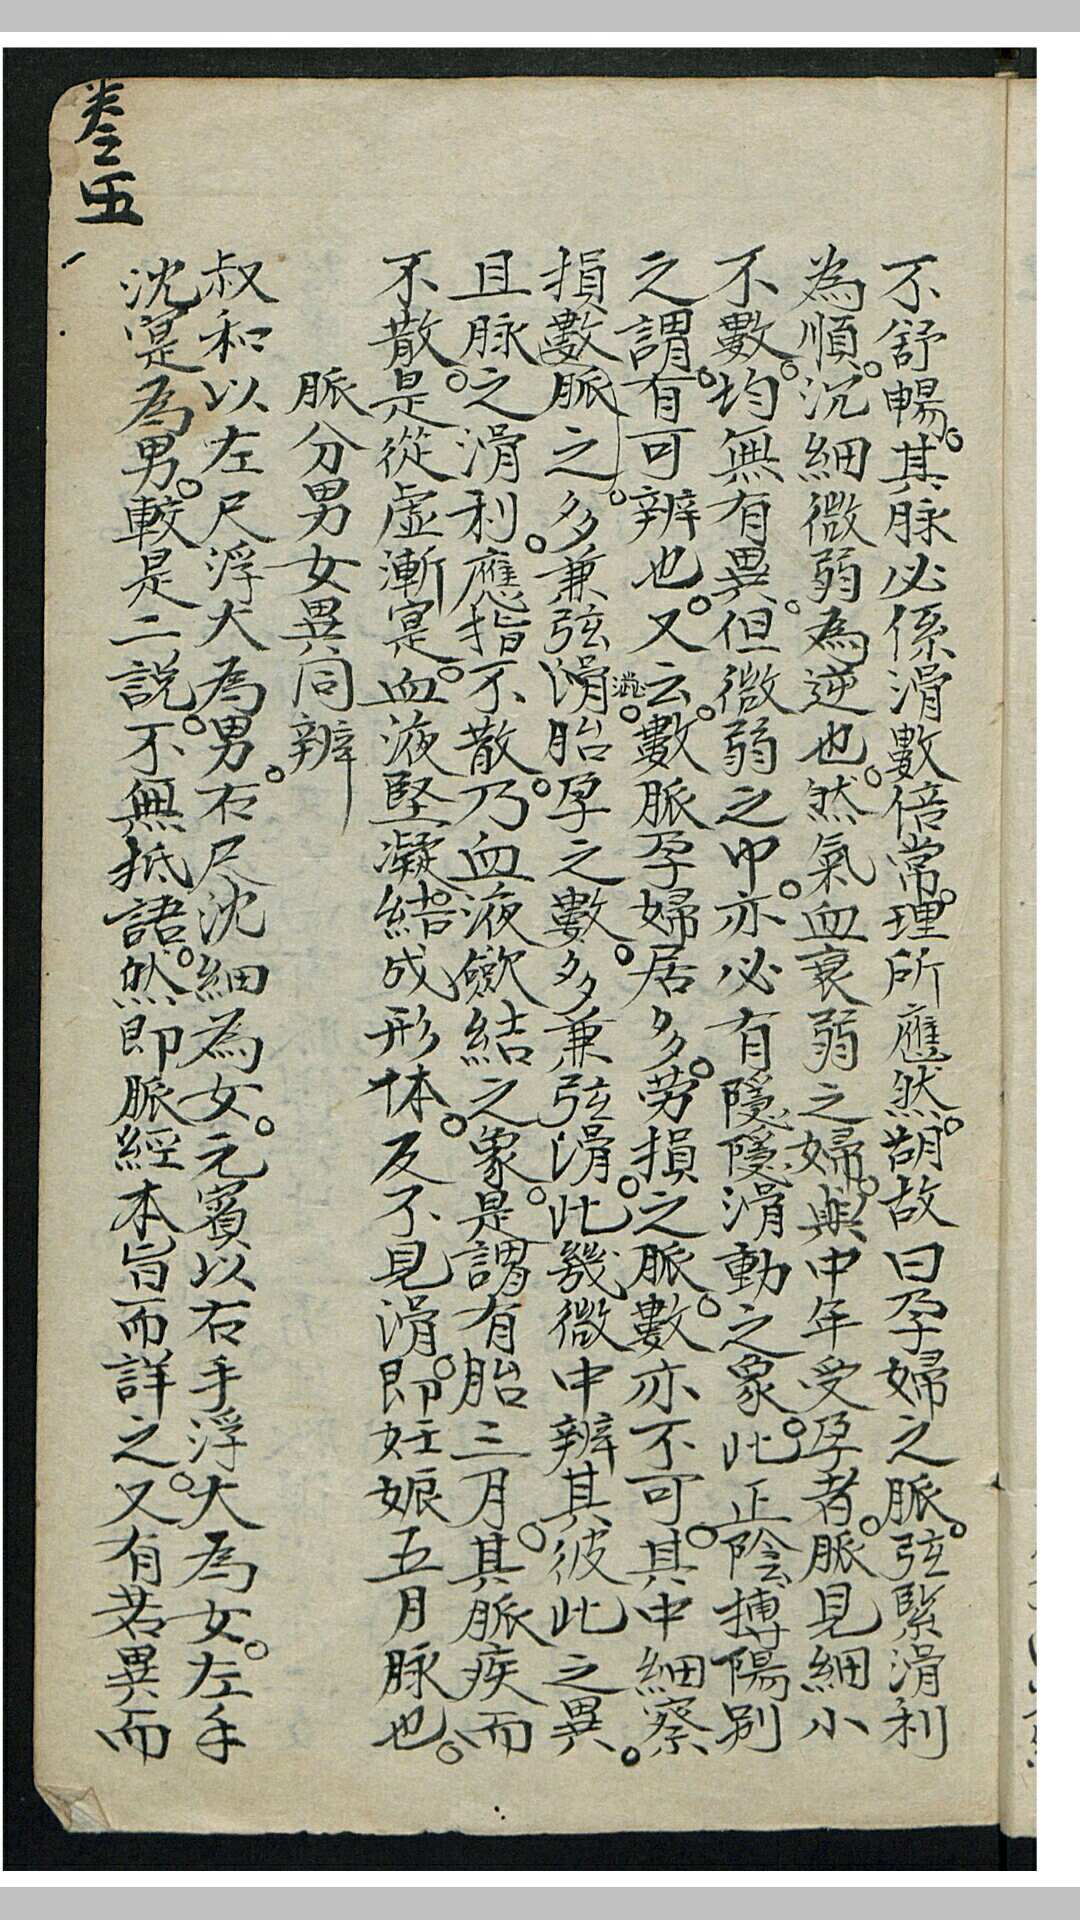 卷五
不舒暢。其脉必係滑數倍常。理所應然。胡故曰孕婦之脈。弦緊滑利
為順。沉細微弱為逆也。然氣血衰弱之婦。與中年受孕者。脈見細小
不數。均無有異。但微弱之中。亦必有隱隱滑動之象。此正陰搏陽别
之謂。有可辨也。又云。數脈孕婦居多。劳損之脈。數亦不可。其中細察
損數脈之。多兼弦濇。胎孕之數。多兼弦滑。此幾微中辨其彼此之異。
且脉之滑利。應指不散。乃血液歛結之象。是謂有胎三月。其脈疾而
不散。是從虛漸寔。血液堅凝。結成形体。反不見滑。即妊娠五月脉也。
脈分男女異同辨
叔和以左尺浮大為男。右尺沈細為女。元賓以右手浮大為女。左手
沈寔為男。較是二說。不無抵語。然即脈經本旨而詳之。又有若異而